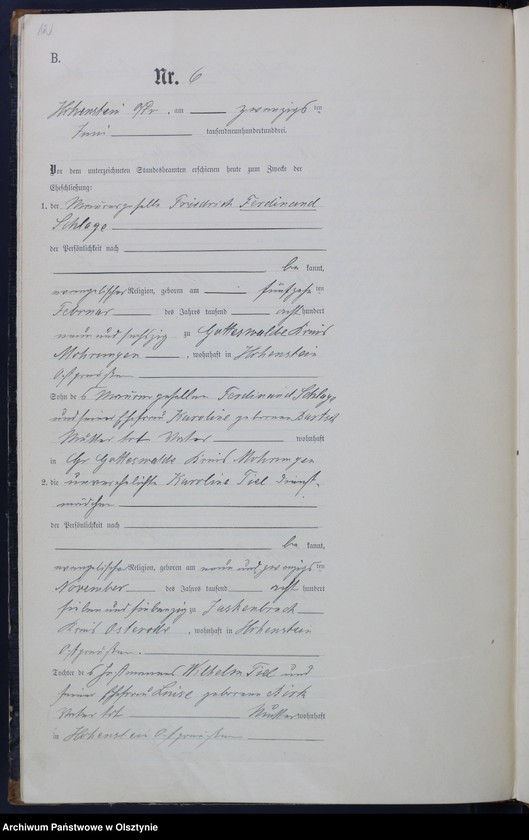 121
B.
Nr. 6
Hohenstein O/Pr. am zwanzigsten
Juni tausendneunhundertunddrei.
Vor dem unterzeichneten Standesbeamten erschienen heute zum Zwecke der
Eheschließung:
1. der Maurergeselle Friedrich Ferdinand
Schlage
der Persönlichkeit nach
be kannt,
evangelischer Religion, geboren am fünfzehnten
Februar des Jahres tausend acht hundert
neun und sechzig zu Gotteswalde Kreis
Mohrungen, wohnhaft in Hohenstein
Ostpreußen
Sohn des Maurergesellen Ferdinand Schlage
und seiner Ehefrau Karoline geborenen
Mutter tot Vater wohnhaft
in Gr Gotteswalde Kreis Mohrungen
2. die unverehelichte Karoline Tiel Dienst-
mädchen
der Persönlichkeit nach
be kannt,
evangelischer Religion, geboren am neun und zwanzigsten
November des Jahres tausend acht hundert
sieben und siebenzig zu
Kreis Osterode, wohnhaft in Hohenstein
Ostpreußen.
Tochter des Wilhelm Tiel und
seiner Ehefrau Louise geborenen
Vater tot Mutter wohnhaft
in Hohenstein Ostpreußen
Archiwum Państwowe w Olsztynie